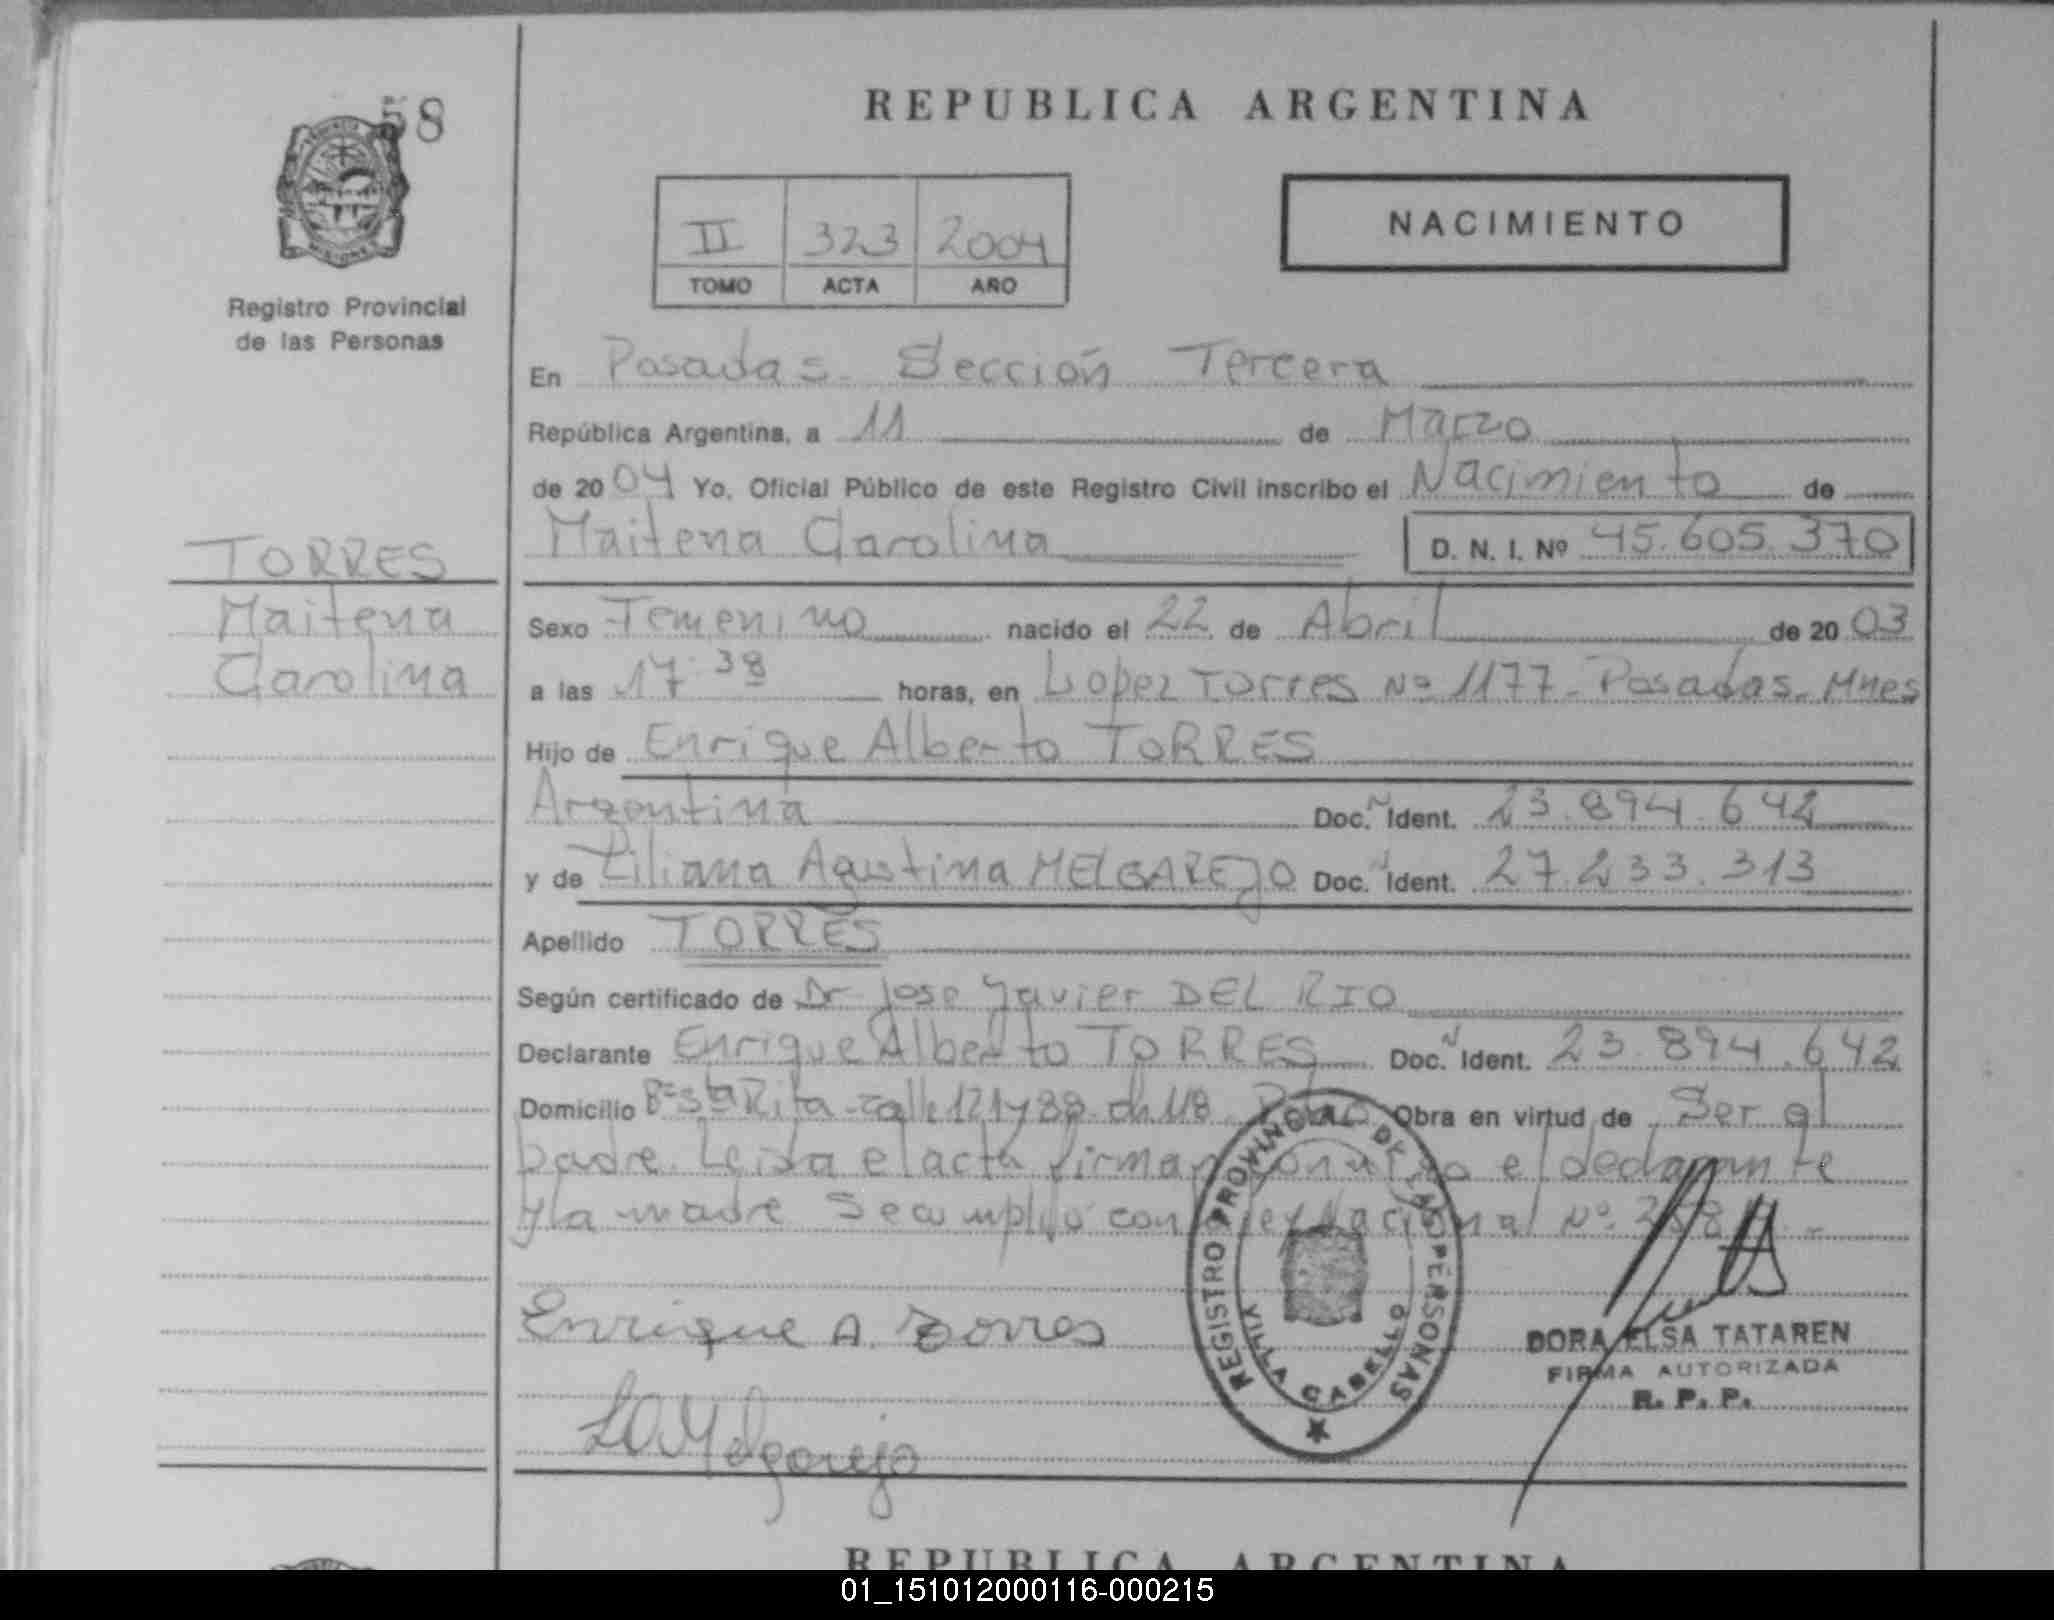 58
REPUBLICA ARGENTINA
II 323 2004
TOMO ACTA AÑO
NACIMIENTO
Registro Provincial
de las Personas
En Posadas. Sección Tercera
República Argentina, a 11 de Marzo
de 2004 Yo, Oficial Público de este Registro Civil inscribo el Nacimiento de
Maitena Carolina D. N. I. Nº 45.605.370
TORRES
Maitena
Carolina
Sexo Femenino nacido el 22 de Abril de 2003
a las 17:38 horas, en Lopez Torres Nº 1177 - Posadas. Mnes
Hijo de Enrique Alberto TORRES
Argentina Doc. Ident. 23.894.642
y de Liliana Agustina MELGAREJO Doc. Ident. 27.233.313
Apellido TORRES
Según certificado de Dr Jose Javier DEL RIO
Declarante Enrique Alberto TORRES Doc. Ident. 23.894.642
Domicilio Bº Sta Rita - calle 121 y 88 Obra en virtud de Ser el
padre. Leida el acta firman conmigo el declarante
y la madre Se cumplió con Ley Nacional Nº
Enrique A. Torres
LAMelgarejo
REGISTRO PROVINCIAL DE LAS PERSONAS
VILLA CABELLO
DORA ELSA TATAREN
FIRMA AUTORIZADA
R. P. P.
REPUBLICA ARGENTINA
01_151012000116-000215